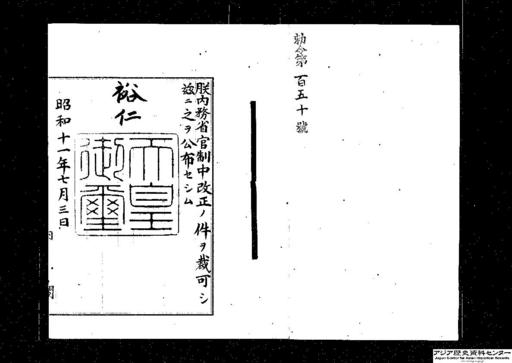 勅令第百五十號
朕内務省官制中改正ノ件ヲ裁可シ
茲ニ之ヲ公布セシム
裕仁
天皇御璽
昭和十一年七月三日
アジア歴史資料センター
Japan Center for Asian Historical Records